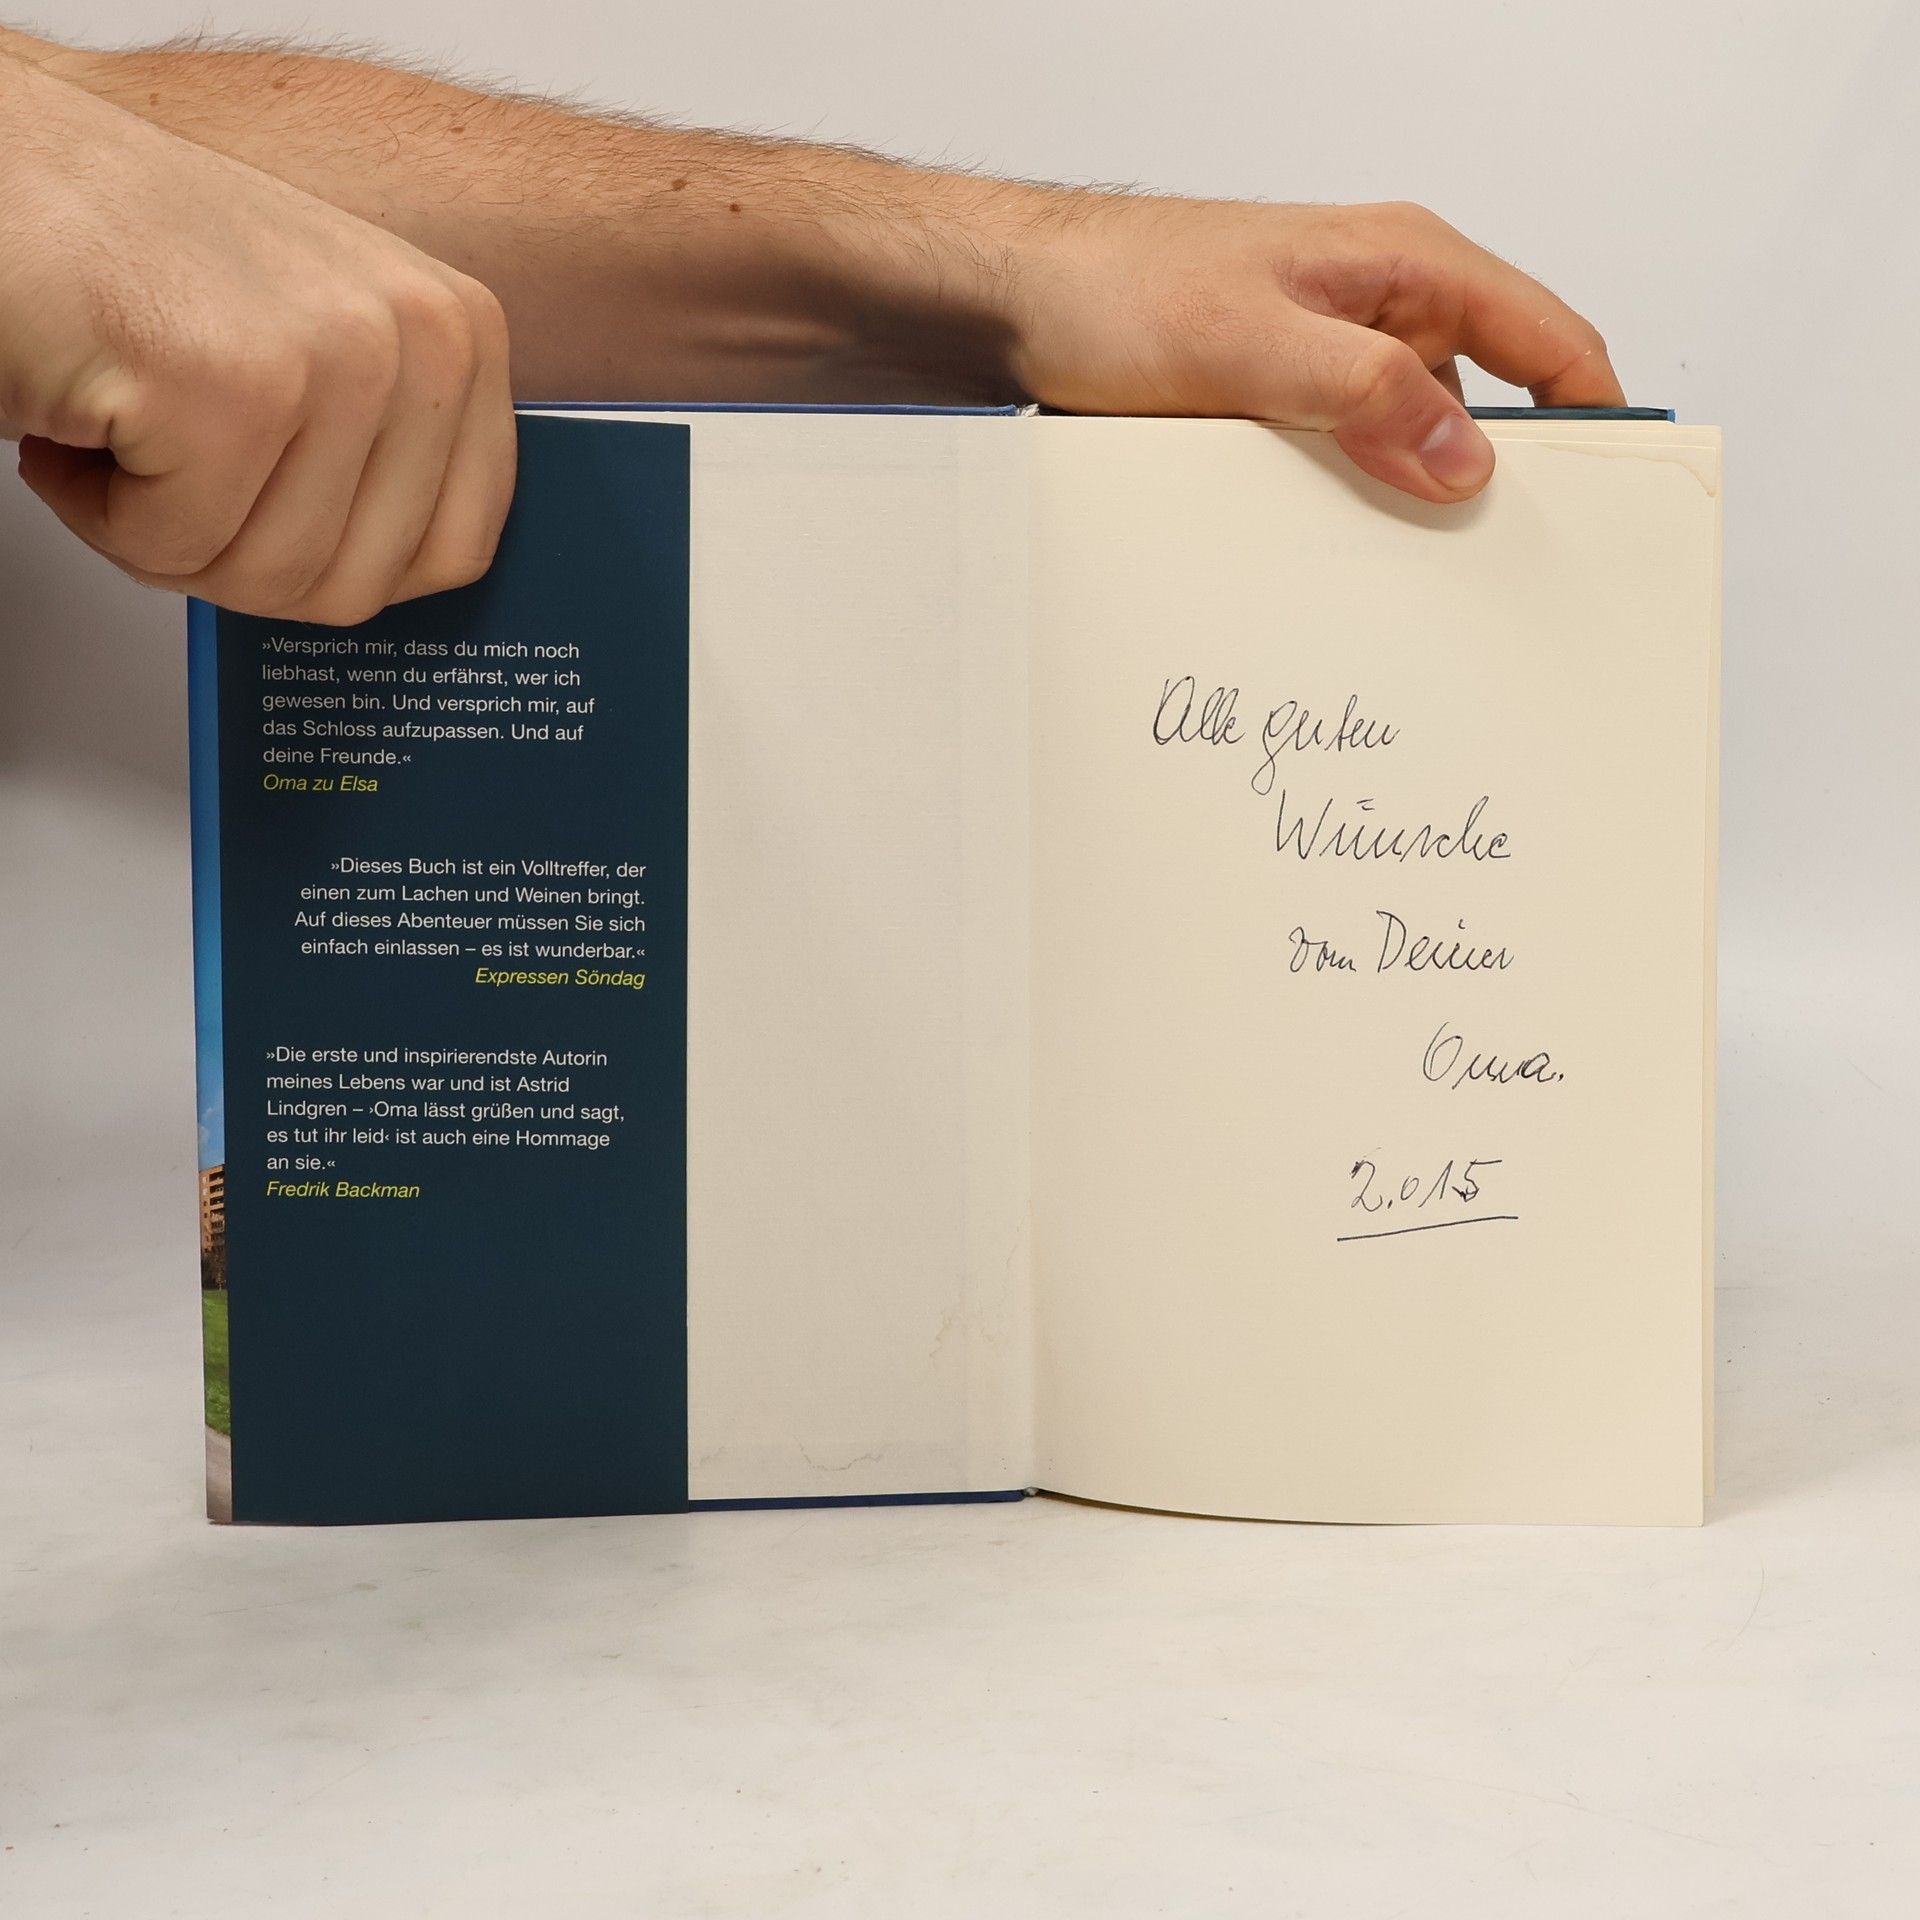 »Versprich mir, dass du mich noch
liebhast, wenn du erfährst, wer ich
gewesen bin. Und versprich mir, auf
das Schloss aufzupassen. Und auf
deine Freunde.«
Oma zu Elsa
»Dieses Buch ist ein Volltreffer, der
einen zum Lachen und Weinen bringt.
Auf dieses Abenteuer müssen Sie sich
einfach einlassen – es ist wunderbar.«
Expressen Söndag
»Die erste und inspirierendste Autorin
meines Lebens war und ist Astrid
Lindgren – ›Oma lässt grüßen und sagt,
es tut ihr leid‹ ist auch eine Hommage
an sie.«
Fredrik Backman
Alle guten
Wünsche
von Deiner
Oma.
2.015